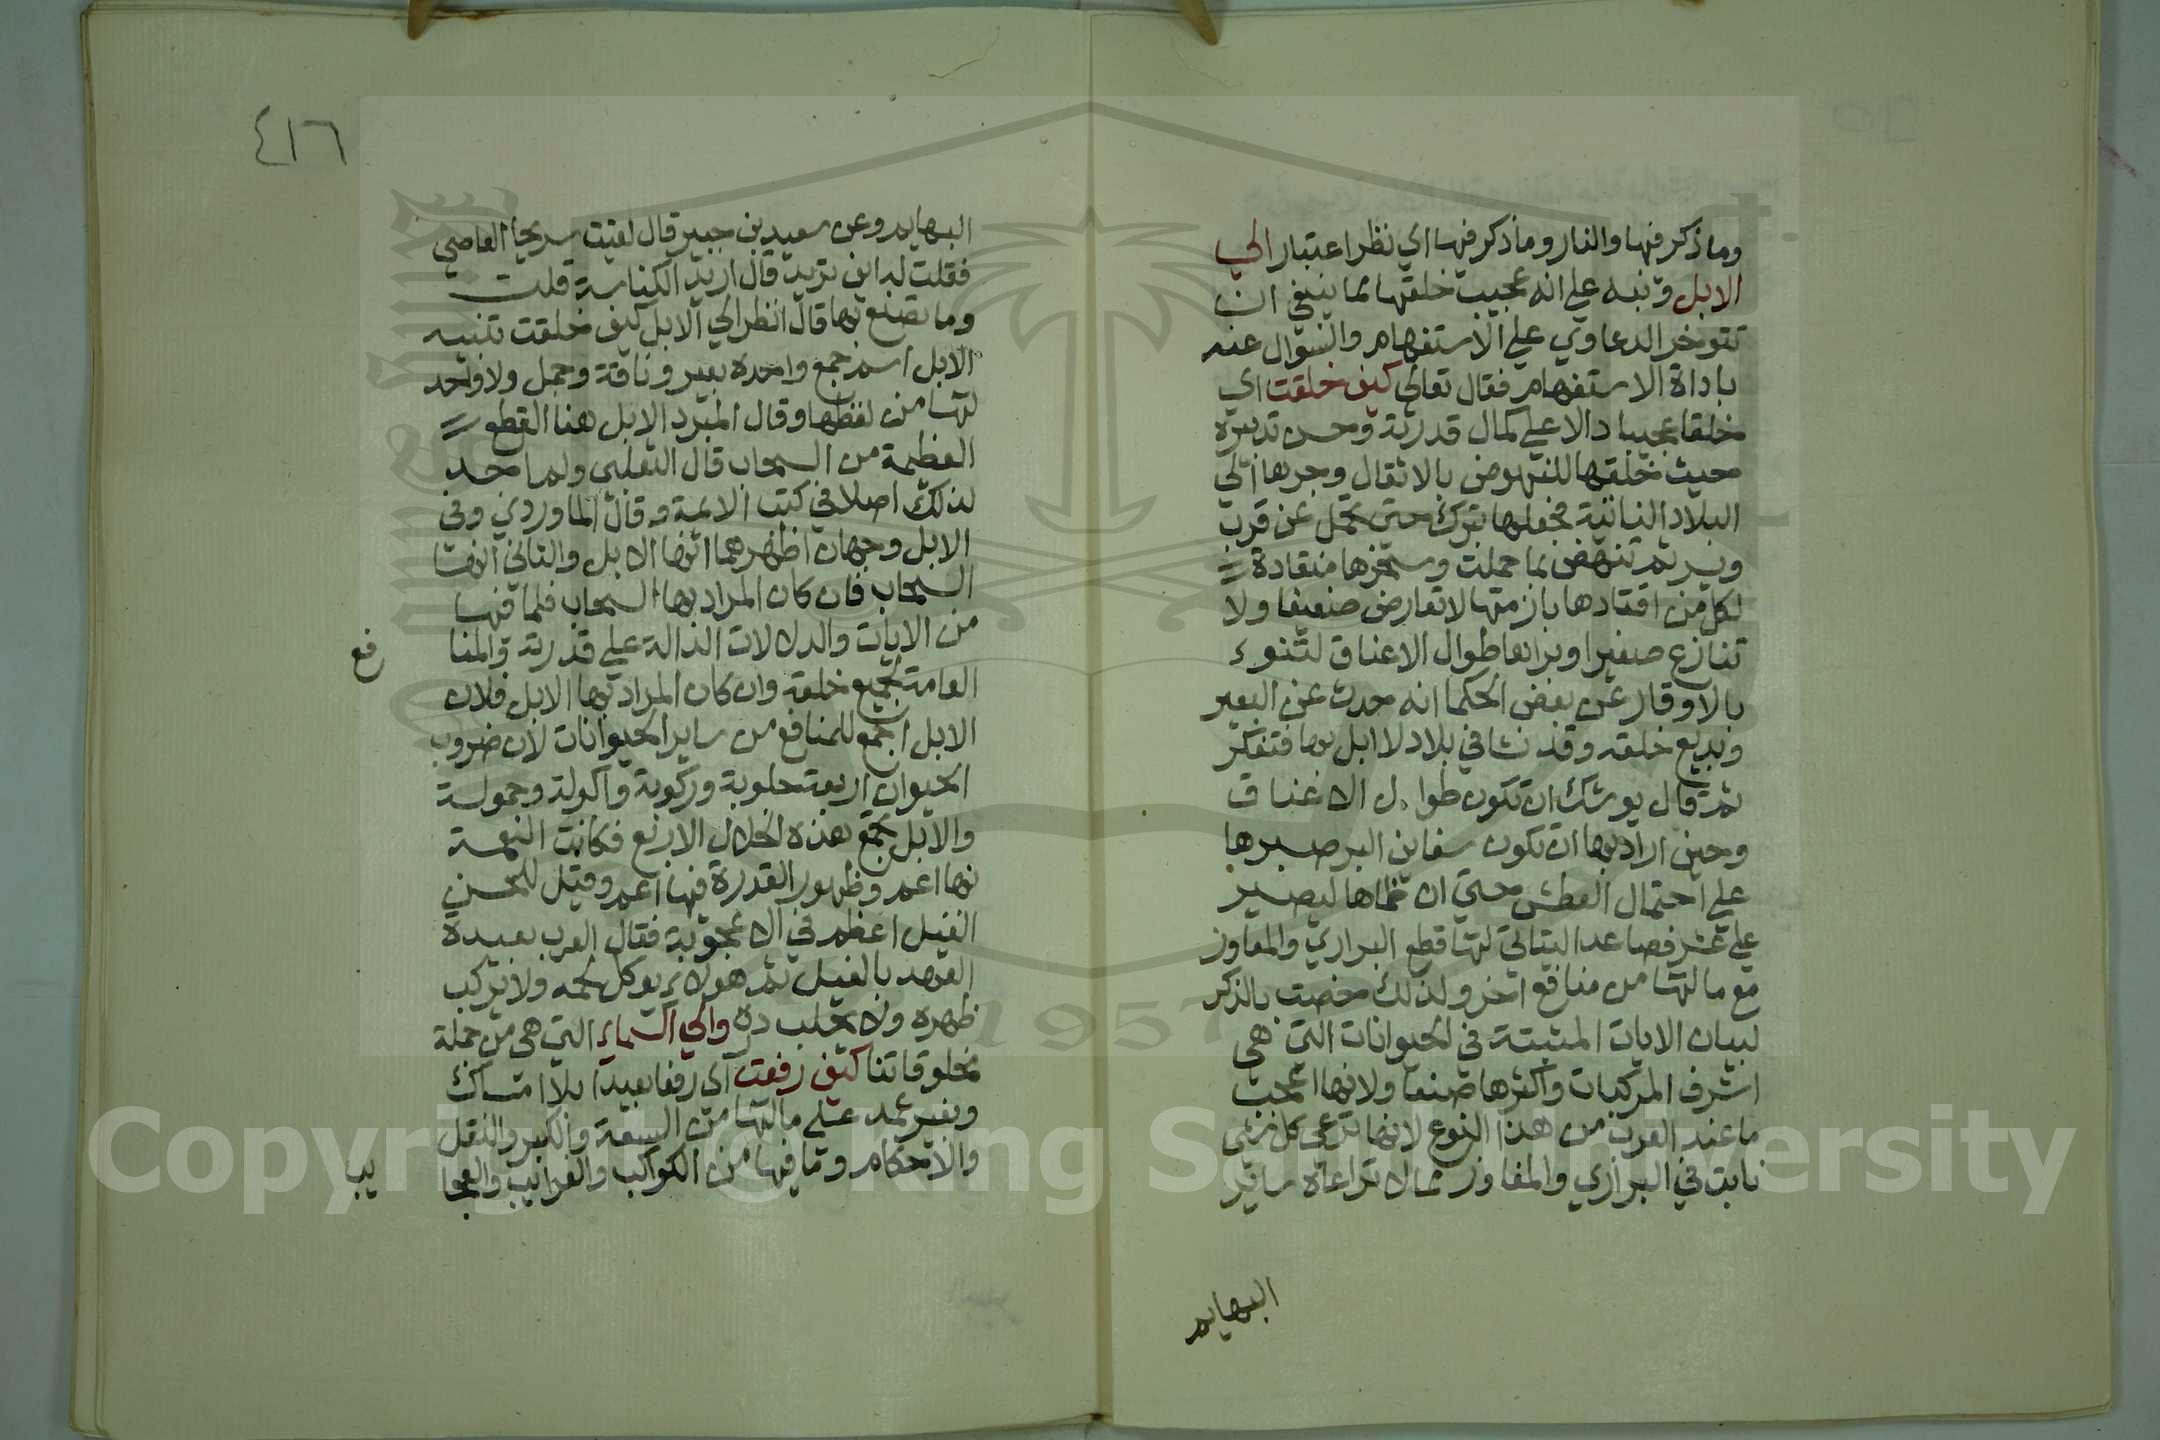 وما ذكر فيها والنار وما ذكر فيها اي نظر اعتبار الي
الابل ونبه علي انه عجيب خلقها مما ينبغي ان
تتوفر الدعاوي علي الاستفهام والسوال عنه
باداة الاستفهام فقال تعالي كيف خلقت اي
خلقا عجيبا دالا علي كمال قدرته وحسن تدبيره
حيث خلقها للنهوض بالاثقال وجرها الي
البلاد النائية فجعلها تبرك حتي تحمل عن قرب
ويسر ثم تنهض بما حملت وسخرها منقادة
لكل من اقتادها بازمتها لا تعارض ضعيفا ولا
تنازع صغيرا وبراها طوال الاعناق لتنوء
بالاوقار عن بعض الحكما انه حدث عن البعير
وبديع خلقه وقد نشا في بلاد لا ابل بها فتفكر
ثم قال يوشك ان تكون طوال الاعناق
وحين اراد بها ان تكون سفاين البر صبرها
علي احتمال العطش حتي ان ظماها ليصير
علي عشر فصاعدا ليتاتي لها قطع البراري والمفاوز
مع ما لها من منافع اخر ولذلك خصت بالذكر
لبيان الايات المثبتة في الحيوانات التي هي
اشرف المركبات واكثرها صنعا ولانها اعجب
ما عند العرب من هذا النوع لانها ترعي كل شي
نابت في البراري والمفاوز مما لا ترعاه ساير
البهايم
٤١٦
البهايم وعن سعيد بن جبير قال لقيت شريحا القاضي
فقلت له اين تريد قال اريد الكناسة قلت
وما تصنع بها قال انظر الي الابل كيف خلقت تنبيه
الابل اسم جمع واحده بعير وناقة وجمل ولا واحد
لها من لفظها وقال المبرد الابل هنا القطع
العظيمة من السحاب قال الثعلبي ولم احد
لذلك اصلا في كتب الائمة وقال الماوردي وفي
الابل وجهان اظهرهما انها الابل والثاني انها
السحاب فان كان المراد بها السحاب فلما فيها
من الايات والدلالات الدالة علي قدرته والمنا
فع
العامة لجميع خلقه وان كان المراد بها الابل فلان
الابل اجمع للمنافع من ساير الحيوانات لان ضروب
الحيوان اربعة حلوبة وركوبة واكولة وحمولة
والابل تجمع هذه الخلال الاربع فكانت النعمة
بها اعم وظهور القدرة فيها اعم وقيل للحسن
الفيل اعظم في الاعجوبة فقال العرب بعيدة
العهد بالفيل ثم هو لا يوكل لحمه ولا يركب
ظهره ولا يحلب دره والي السماء التي هي من جملة
مخلوقاتنا كيف رفعت اي رفعا بعيدا بلا امساك
وبغير عمد علي ما لها من السعة والكبر والثقل
والاحكام وما فيها من الكواكب والغرايب والعجا
يب
1957
Copyright © King Saud University